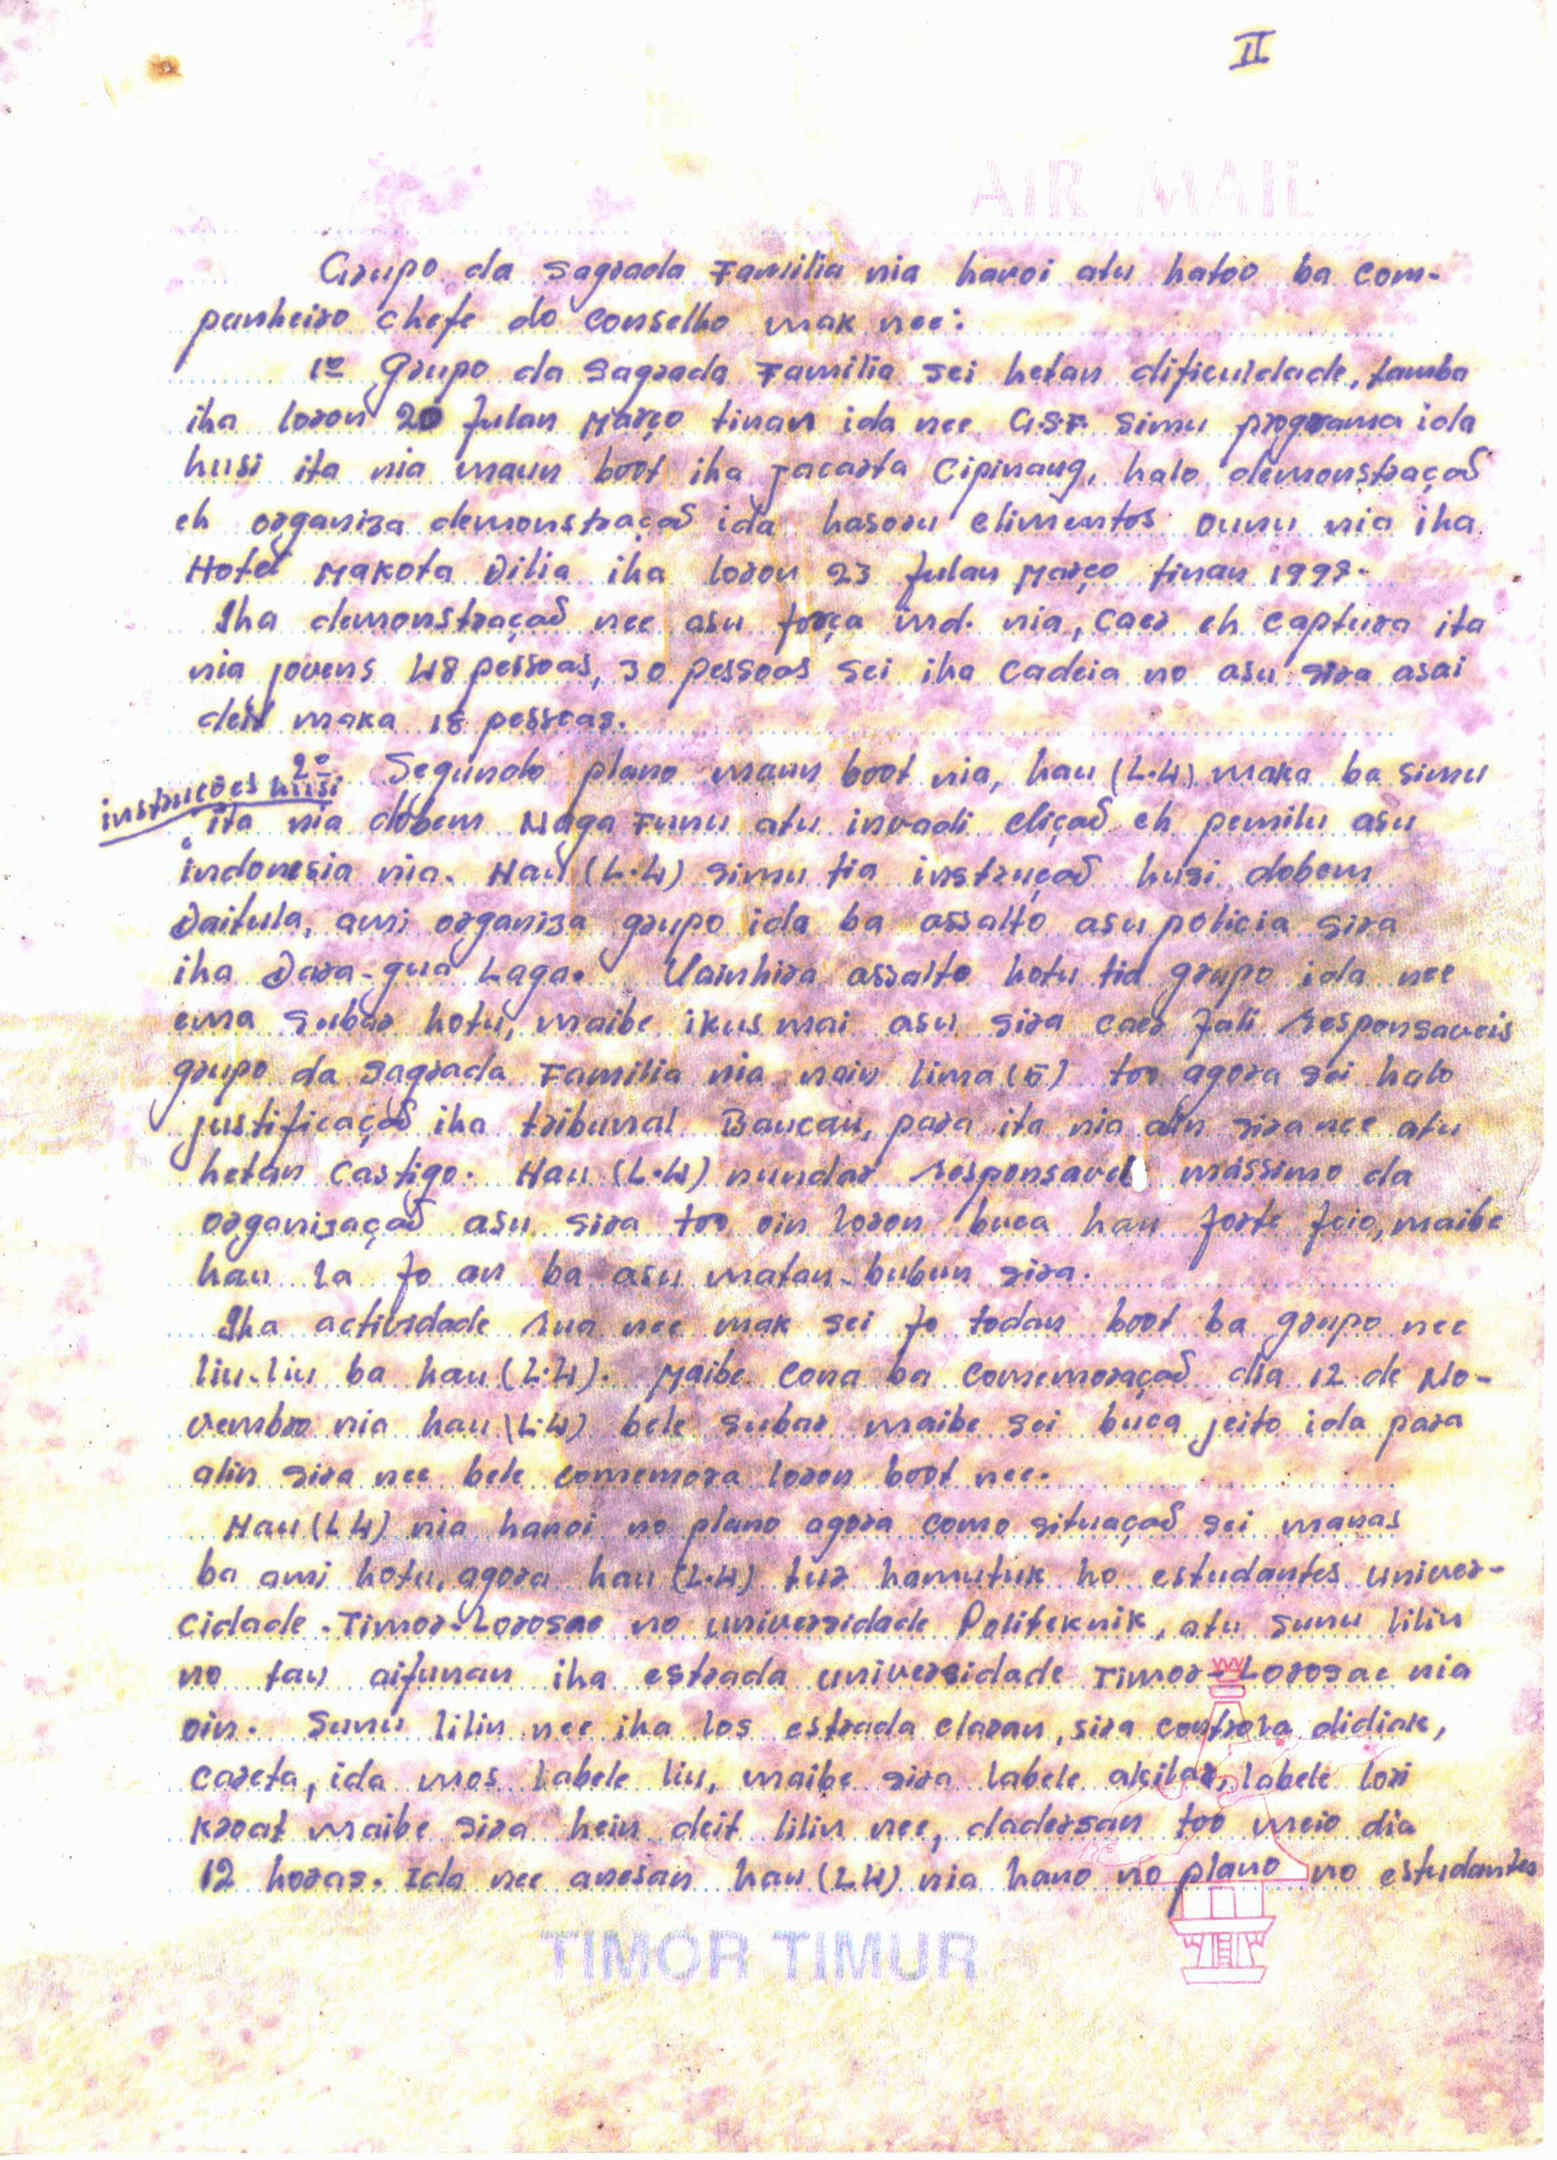 II
AIR MAIL
Grupo da Sagrada Familia nia hanoi atu hatoo ba com-
panheiro chefe do conselho mak nee:
1º Grupo da Sagrada Familia sei hetan dificuldade, tamba
iha loron 20 fulan Março tinan ida nee G.S.F. simu programa ida
husi ita nia maun boot iha Jacarta Cipinang, halo demonstraçaõ
eh organiza demonstraçaõ ida hasoru elimentos Ounu nia iha
Hotel Makota Dilia iha loron 23 fulan Março tinan 1997.
Iha demonstraçaõ nee asu força ind. nia, caer eh captura ita
nia jovens 48 pessoas, 30 pessoas sei iha cadeia no asu sira asai
deit maka 18 pessoas.
2º Segundo plano maun boot nia, hau (L.W) maka ba simu
instruções husi
ita nia dobem Maga Funu atu invadi eliçaõ eh pemilu asu
indonesia nia. Hau (L.W) simu tia instruçaõ husi dobem
Daitula, ami organiza grupo ida ba assalto asu policia sira
iha Dara-gua Laga. Uainhira assalto hotu tia grupo ida nee
ema subar hotu, maibe ikus mai asu sira caer fali responsaveis
grupo da Sagrada Familia nia nain lima (5) too agora sei halo
justificaçaõ iha tribunal Baucau, para ita nia alin sira nee atu
hetan castigo. Hau (L.W) nundar responsavel mássimo da
organizaçaõ asu sira too oin loron buca hau forte feio, maibe
hau la fo an ba asu matan-bubun sira.
Iha actividade rua nee mak sei fo todan boot ba grupo nee
liu-liu ba hau (L.W). Maibe cona ba comemoraçaõ dia 12 de No-
vembro nia hau (L.W) bele subar maibe sei buca jeito ida para
alin sira nee bele comemora loron boot nee.
Hau (L W) nia hanoi no plano agora como situaçaõ sei manas
ba ami hotu, agora hau (L.W) tur hamutuk ho estudantes univer-
cidade Timor-Lorosae no universidade Politeknik, atu sunu lilin
no tau aifunan iha estrada universidade Timor-Lorosae nia
oin. Sunu lilin nee iha los estrada claran, sira controla didiak,
careta, ida mos labele liu, maibe sira labele akilar, labele lori
kroat maibe sira hein deit lilin nee, dadersan too meio dia
12 horas. Ida nee anesan hau (L W) nia hano no plano no estudantes
TIMOR TIMUR